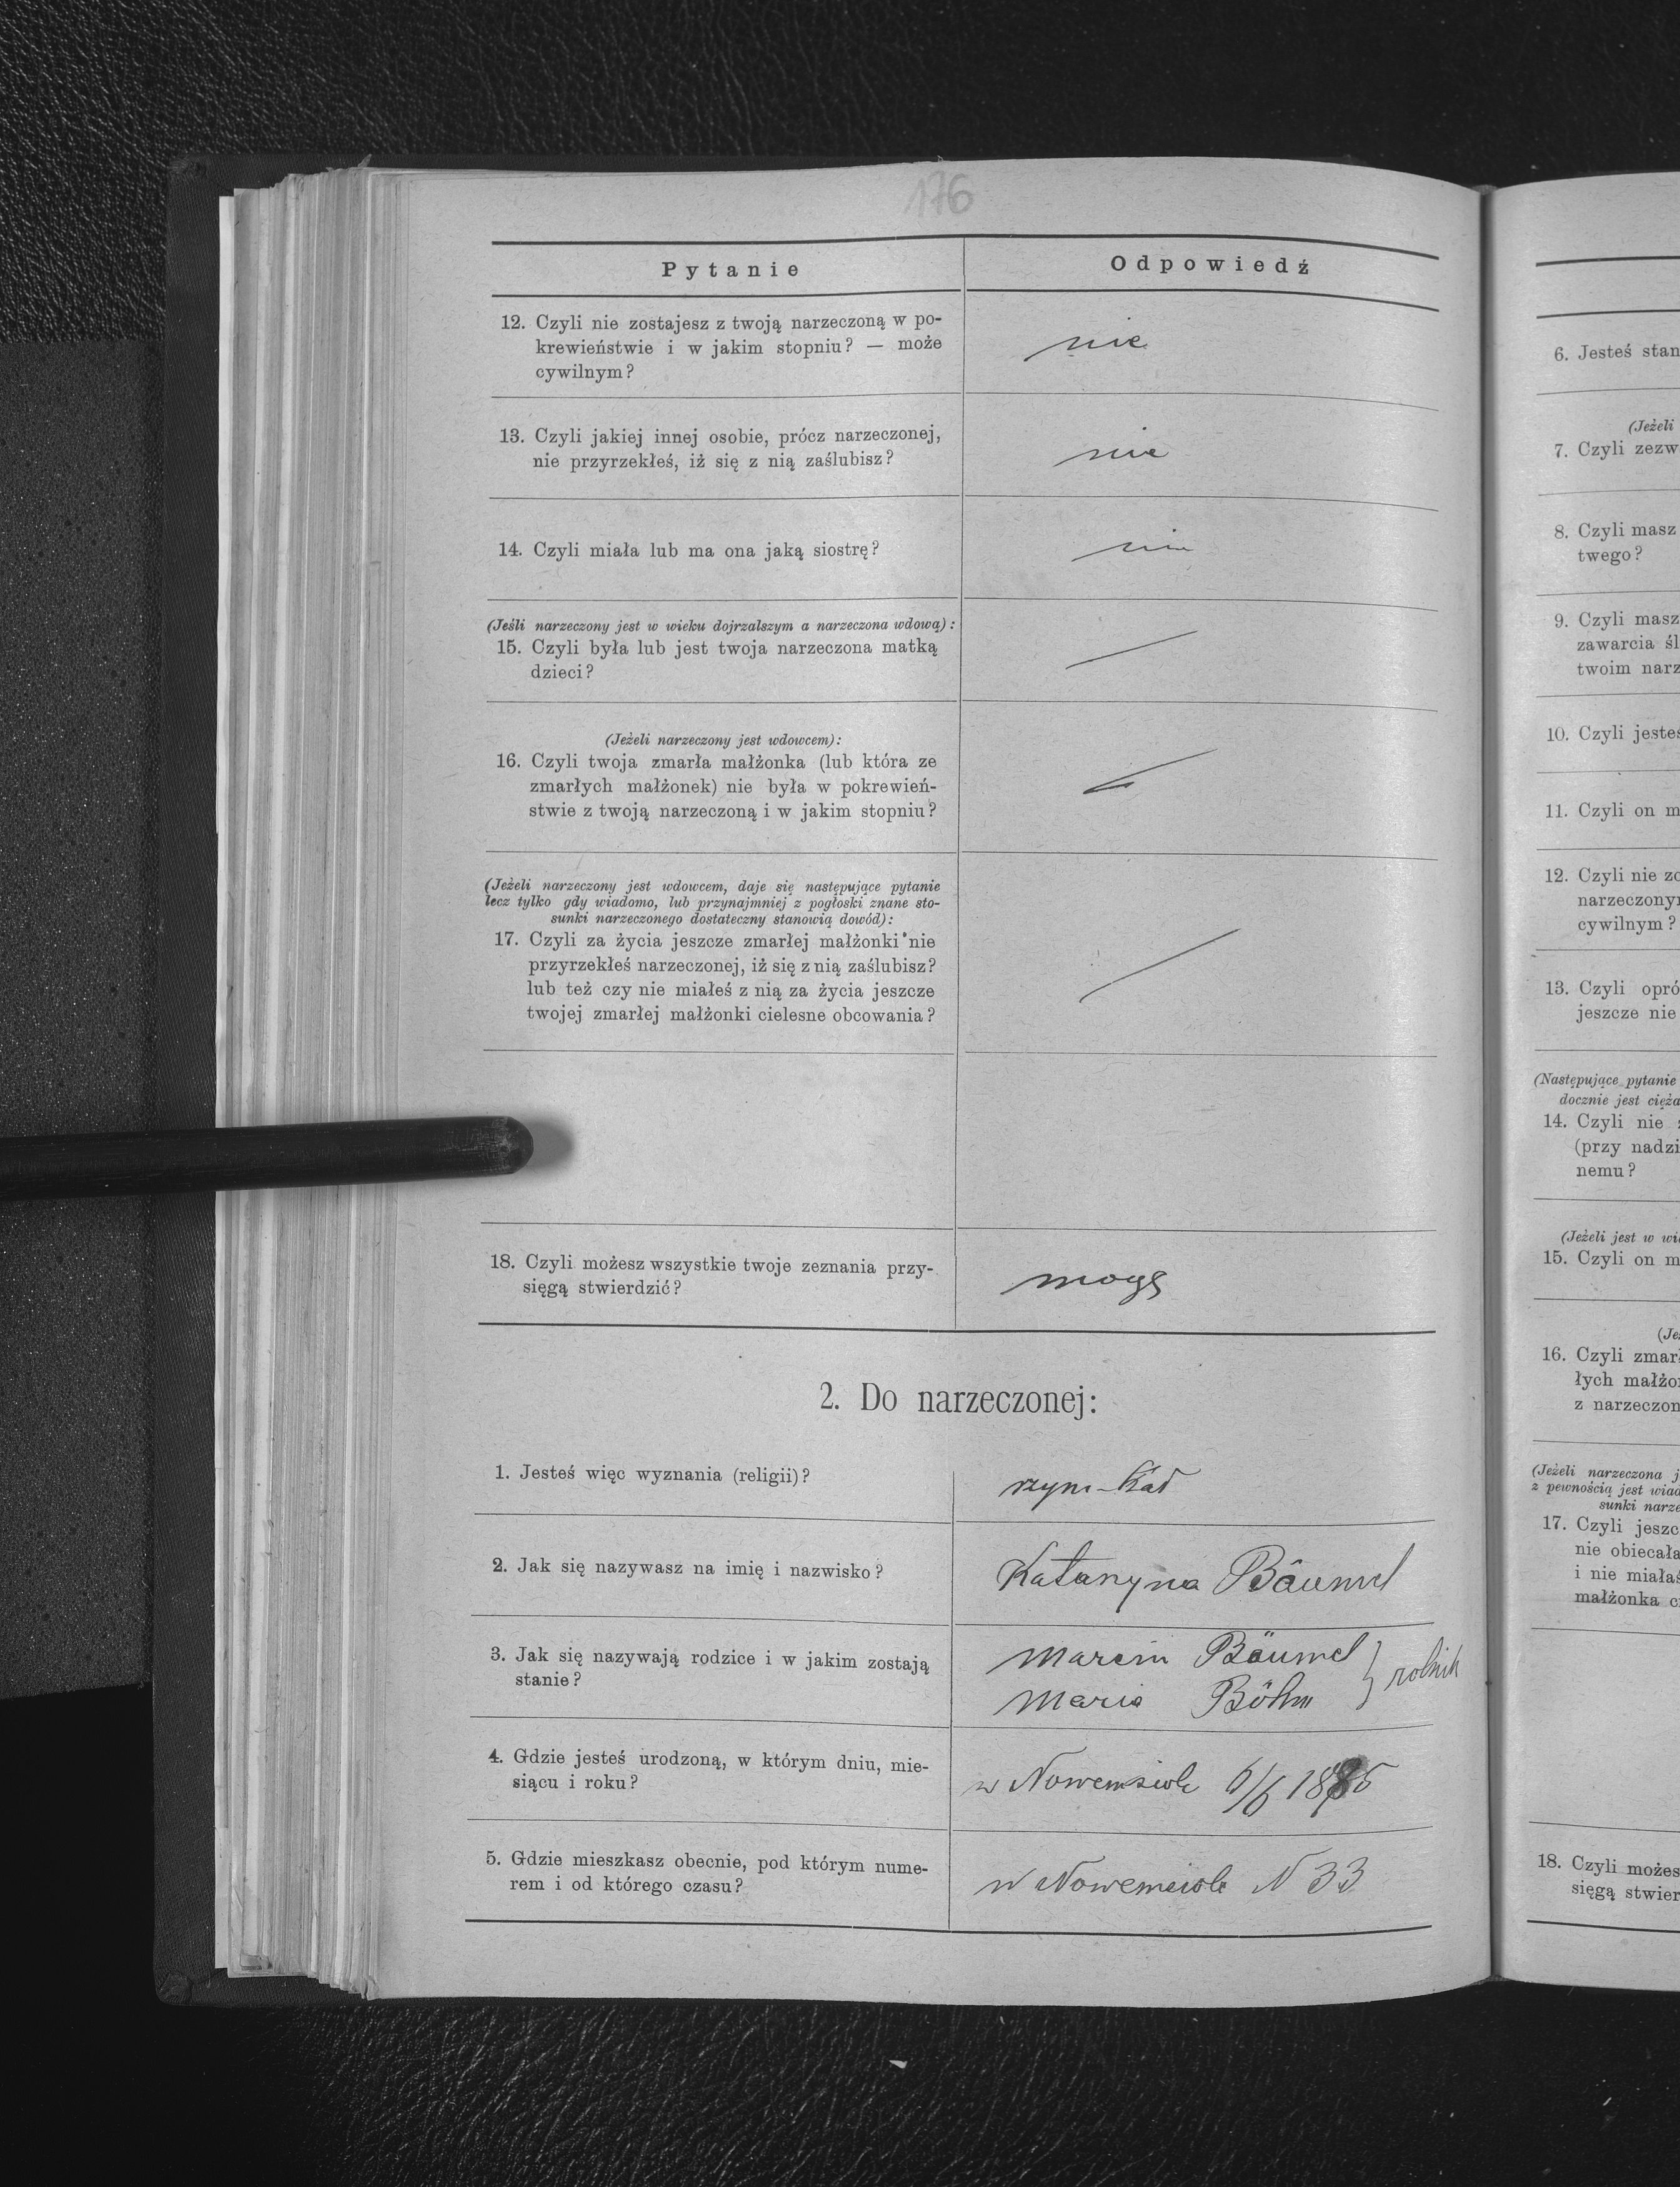 176
Pytanie Odpowiedź
12. Czyli nie zostajesz z twoją narzeczoną w po-
krewieństwie i w jakim stopniu? — może
cywilnym?
nie
13. Czyli jakiej innej osobie, prócz narzeczonej,
nie przyrzekłeś, iż się z nią zaślubisz?
nie
14. Czyli miała lub ma ona jaką siostrę?
nie
(Jeśli narzeczony jest w wieku dojrzalszym a narzeczona wdową):
15. Czyli była lub jest twoja narzeczona matką
dzieci?
(Jeżeli narzeczony jest wdowcem):
16. Czyli twoja zmarła małżonka (lub która ze
zmarłych małżonek) nie była w pokrewień-
stwie z twoją narzeczoną i w jakim stopniu?
(Jeżeli narzeczony jest wdowcem, daje się następujące pytanie
lecz tylko gdy wiadomo, lub przynajmniej z pogłoski znane sto-
sunki narzeczonego dostateczny stanowią dowód):
17. Czyli za życia jeszcze zmarłej małżonki nie
przyrzekłeś narzeczonej, iż się z nią zaślubisz?
lub też czy nie miałeś z nią za życia jeszcze
twojej zmarłej małżonki cielesne obcowania?
18. Czyli możesz wszystkie twoje zeznania przy-
sięgą stwierdzić?
mogę
2. Do narzeczonej:
1. Jesteś więc wyznania (religii)?
rzym-kat
2. Jak się nazywasz na imię i nazwisko?
Katarzyna Bäumel
3. Jak się nazywają rodzice i w jakim zostają
stanie?
Marcin Bäumel
Maria Böhm } rolnik
4. Gdzie jesteś urodzoną, w którym dniu, mie-
siącu i roku?
w Nowemsiole 6/6 1885
5. Gdzie mieszkasz obecnie, pod którym nume-
rem i od którego czasu?
w Nowemsiole N 33
6. Jesteś stan
(Jeżeli
7. Czyli zezw
8. Czyli masz
twego?
9. Czyli masz
zawarcia śl
twoim narz
10. Czyli jesteś
11. Czyli on m
12. Czyli nie zo
narzeczonym
cywilnym?
13. Czyli opró
jeszcze nie
(Następujące pytanie
docznie jest cięża
14. Czyli nie
(przy nadzi
nemu?
(Jeżeli jest w wie
15. Czyli on m
(Je
16. Czyli zmar
łych małżo
z narzeczon
(Jeżeli narzeczona j
z pewnością jest wiad
sunki narze
17. Czyli jeszc
nie obiecała
i nie miałaś
małżonka c
18. Czyli możes
sięgą stwier